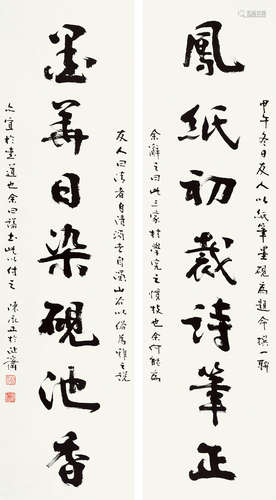 甲午冬日友人以紙筆墨硯為題命撰一聯
鳳紙初裁詩筆正
余辭之曰此三家村學究之慣技也余何能為
友人曰清者自清濁者自濁山谷以俗為雅之說
墨華日染硯池香
亦宜於書道也余曰諾書此以付之 陳永正於沚齋